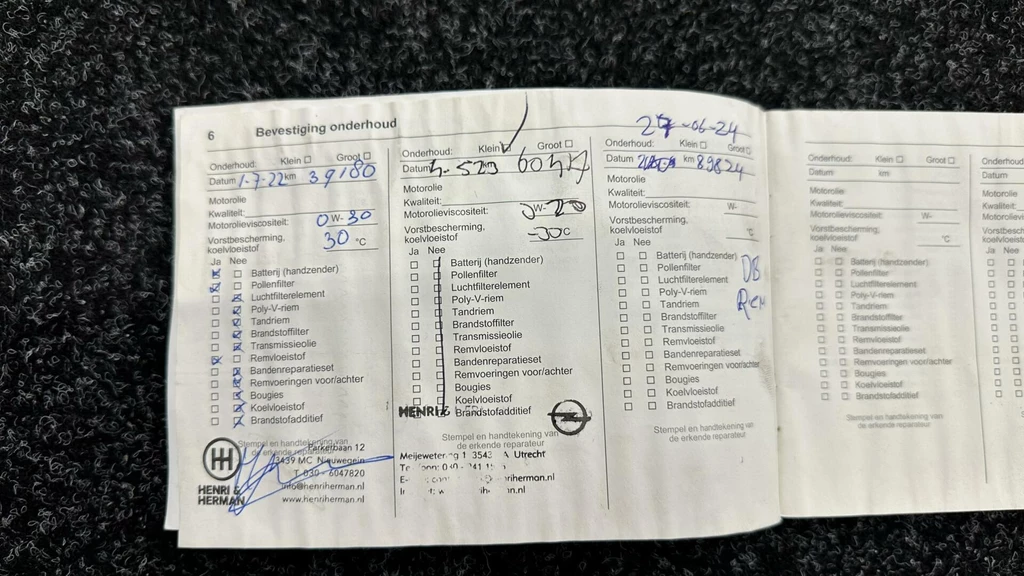 6 Bevestiging onderhoud
Onderhoud: Klein Groot
Datum 1-7-22 km 39180
Motorolie
Kwaliteit:
Motorolieviscositeit: 0W-30
Vorstbescherming,
koelvloeistof 30 °C
Ja Nee
Batterij (handzender)
Pollenfilter
Luchtfilterelement
Poly-V-riem
Tandriem
Brandstoffilter
Transmissieolie
Remvloeistof
Bandenreparatieset
Remvoeringen voor/achter
Bougies
Koelvloeistof
Brandstofadditief
Stempel en handtekening van
de erkende reparateur
HENRI &
HERMAN
Parkerbaan 12
3439 MC Nieuwegein
T 030 - 6047820
info@henriherman.nl
www.henriherman.nl
Onderhoud: Klein Groot
Datum
Motorolie
Kwaliteit:
Motorolieviscositeit: W-20
Vorstbescherming,
koelvloeistof -30 C
Ja Nee
Batterij (handzender)
Pollenfilter
Luchtfilterelement
Poly-V-riem
Tandriem
Brandstoffilter
Transmissieolie
Remvloeistof
Bandenreparatieset
Remvoeringen voor/achter
Bougies
Koelvloeistof
Brandstofadditief
HENRI
Stempel en handtekening van
de erkende reparateur
Utrecht
27-06-24
Onderhoud: Klein Groot
Datum km 89824
Motorolie
Kwaliteit:
Motorolieviscositeit: W-
Vorstbescherming,
koelvloeistof °C
Ja Nee
Batterij (handzender)
Pollenfilter
Luchtfilterelement
Poly-V-riem
Tandriem
Brandstoffilter
Transmissieolie
Remvloeistof
Bandenreparatieset
Remvoeringen voor/achter
Bougies
Koelvloeistof
Brandstofadditief
Stempel en handtekening van
de erkende reparateur
Onderhoud: Klein Groot
Datum km
Motorolie
Kwaliteit:
Motorolieviscositeit: W-
Vorstbescherming,
koelvloeistof °C
Ja Nee
Batterij (handzender)
Pollenfilter
Luchtfilterelement
Poly-V-riem
Tandriem
Brandstoffilter
Transmissieolie
Remvloeistof
Bandenreparatieset
Remvoeringen voor/achter
Bougies
Koelvloeistof
Brandstofadditief
Stempel en handtekening van
de erkende reparateur
Onderhoud:
Datum
Motorolie
Kwaliteit:
Ja Nee